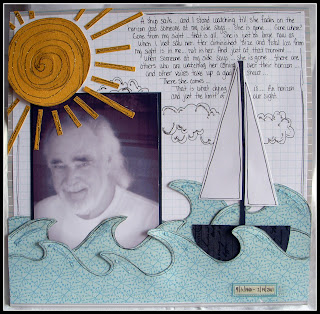 A ship sails... and I stand watching till she fades on the
horizon and someone at my side says She is gone. Gone where?
Gone from my sight, that is all. She is just as large now as
when I last saw her. Her diminished size and total loss from
my sight is in me, not in her. And just at that moment
when someone at my side says She is gone, there are
others who are watching her coming over their horizon
and other voices take up a glad shout
There she comes...
That is what dying is... An horizon
and just the limit of our sight.